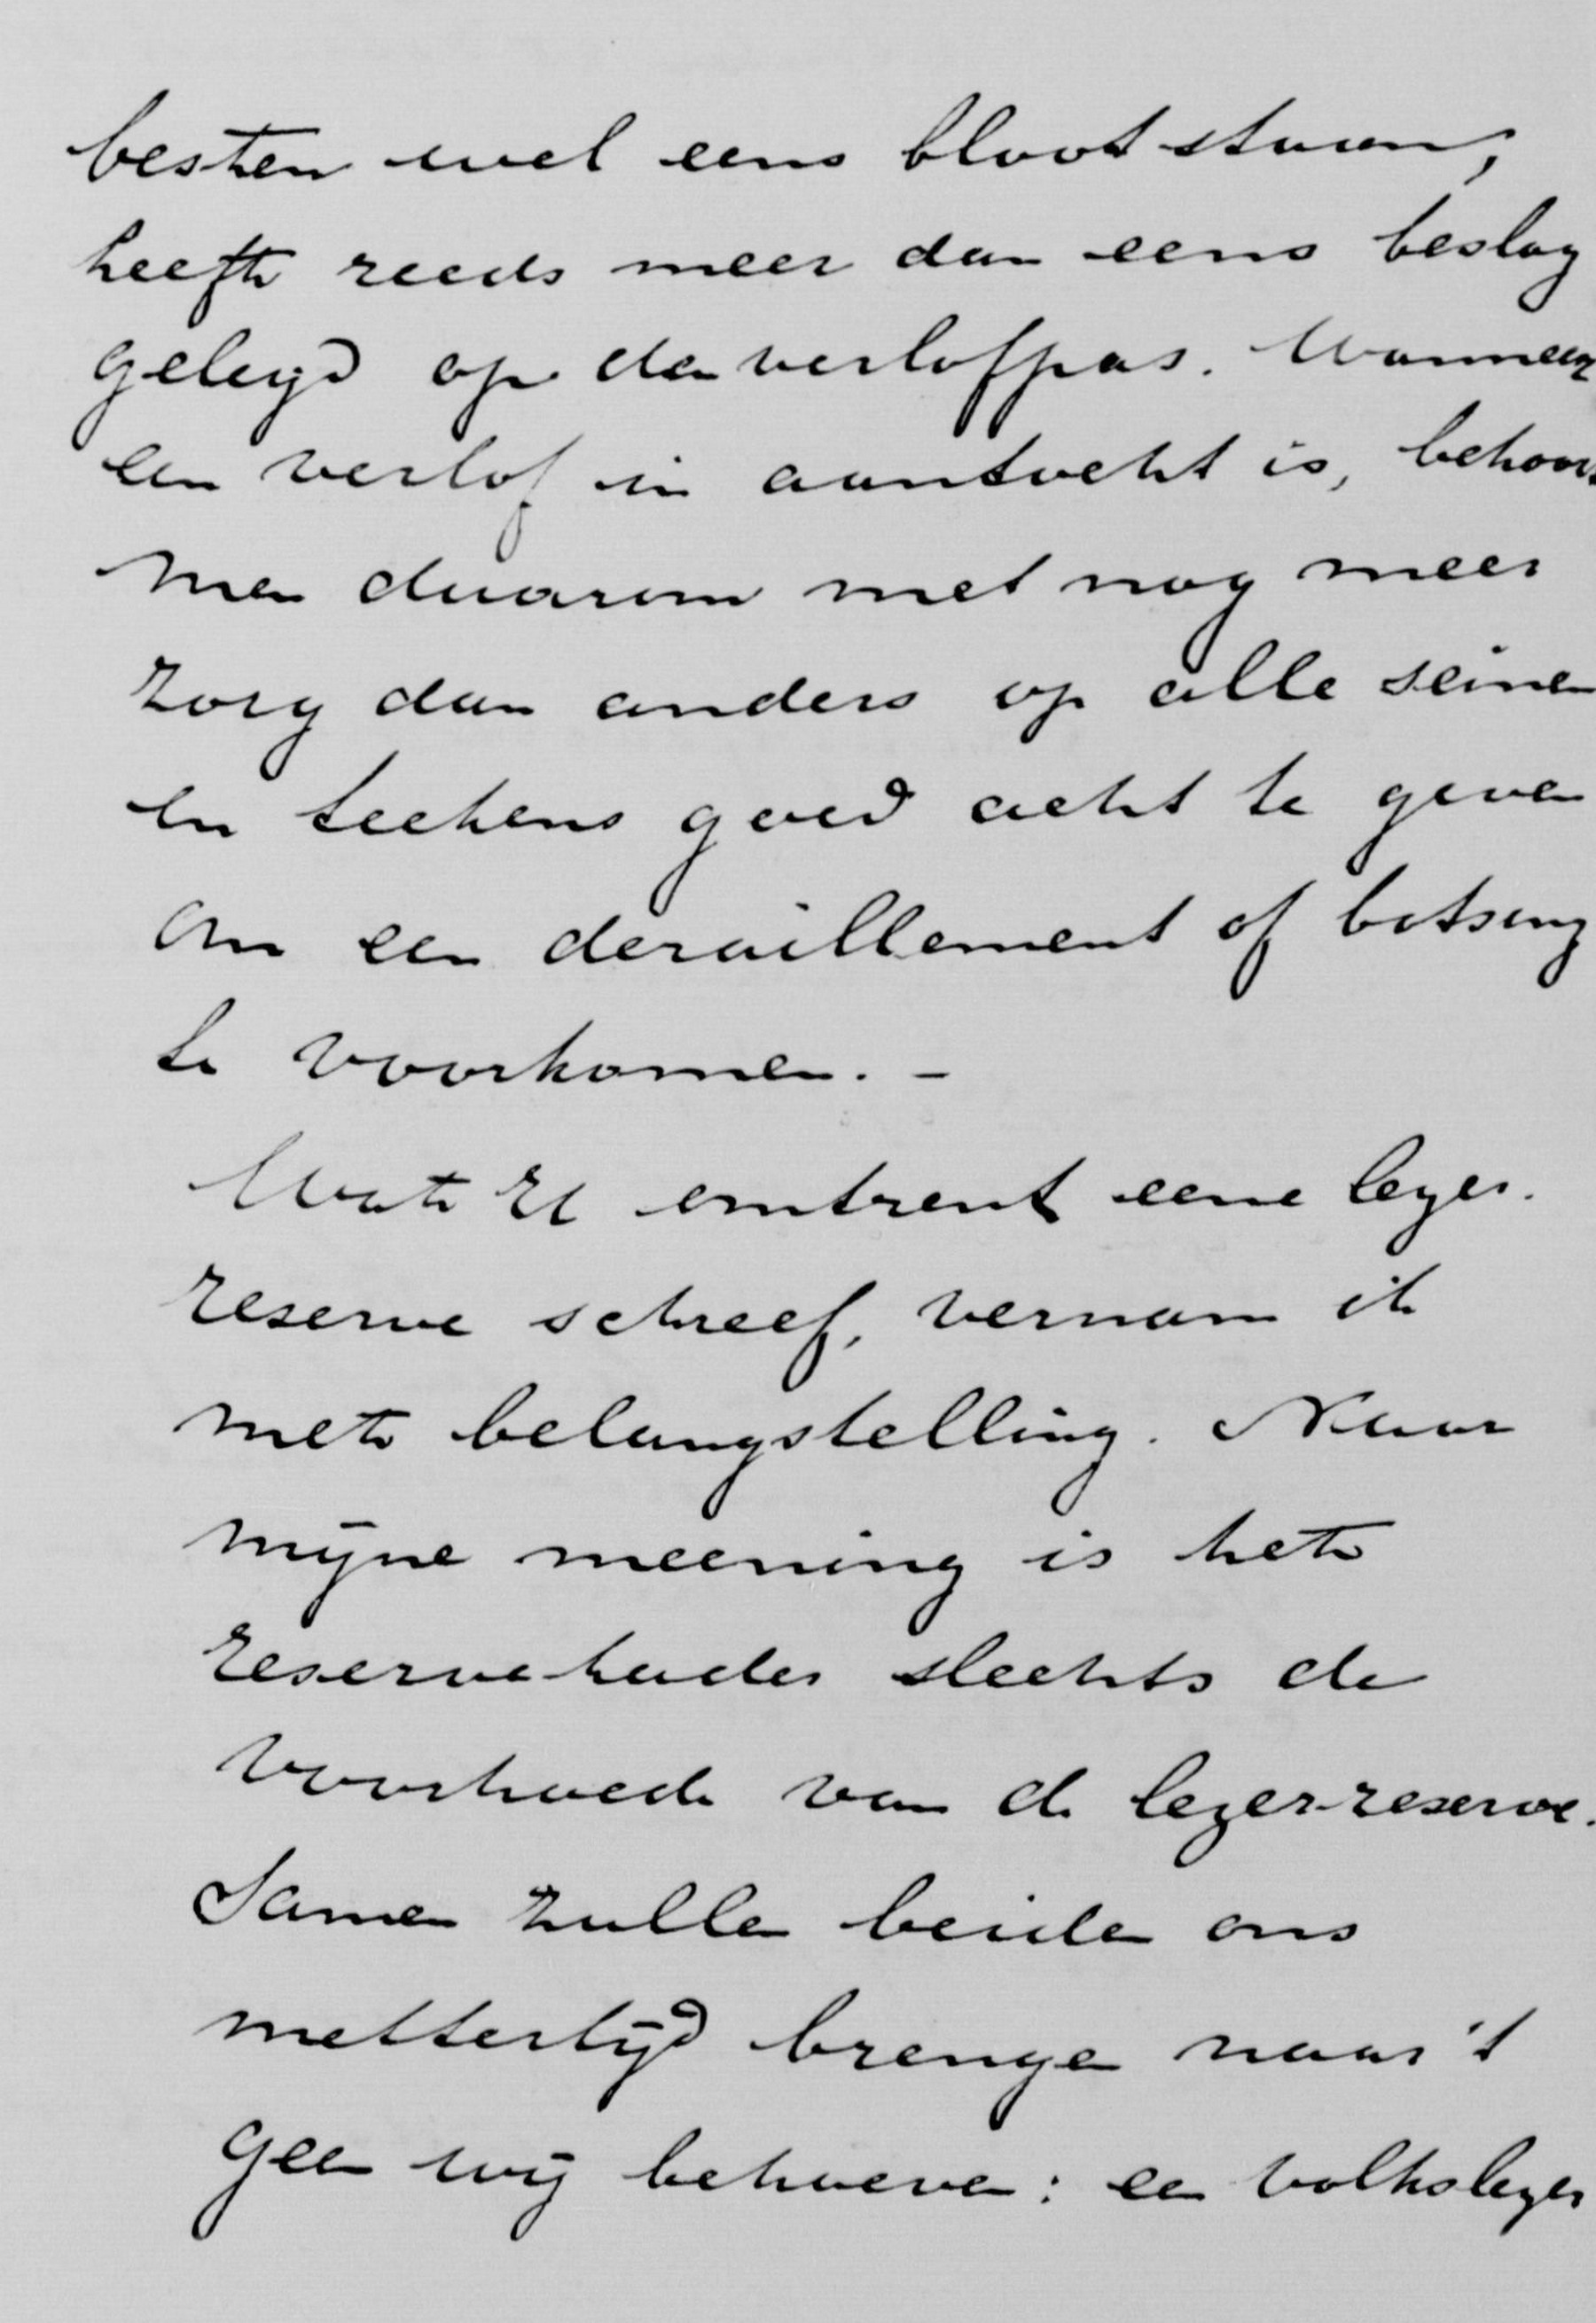 besten wel eens blootstaan,
heeft reeds meer dan eens beslag
gelegd op de verlofpas. Wanneer
een verlof in aantocht is, behoort
men daarom met nog meer
zorg dan anders op alle seinen
en teekens goed acht te geven
om een deraillement of botsing
te voorkomen. -
Wat U omtrent eene leger-
reserve schreef, vernam ik
met belangstelling. Naar
mijne meening is het
reserve-kader slechts de
voorhoede van de leger-reserve.
Samen zullen beiden ons
mettertijd brengen naar 't
geen wij behoeven: een volksleger